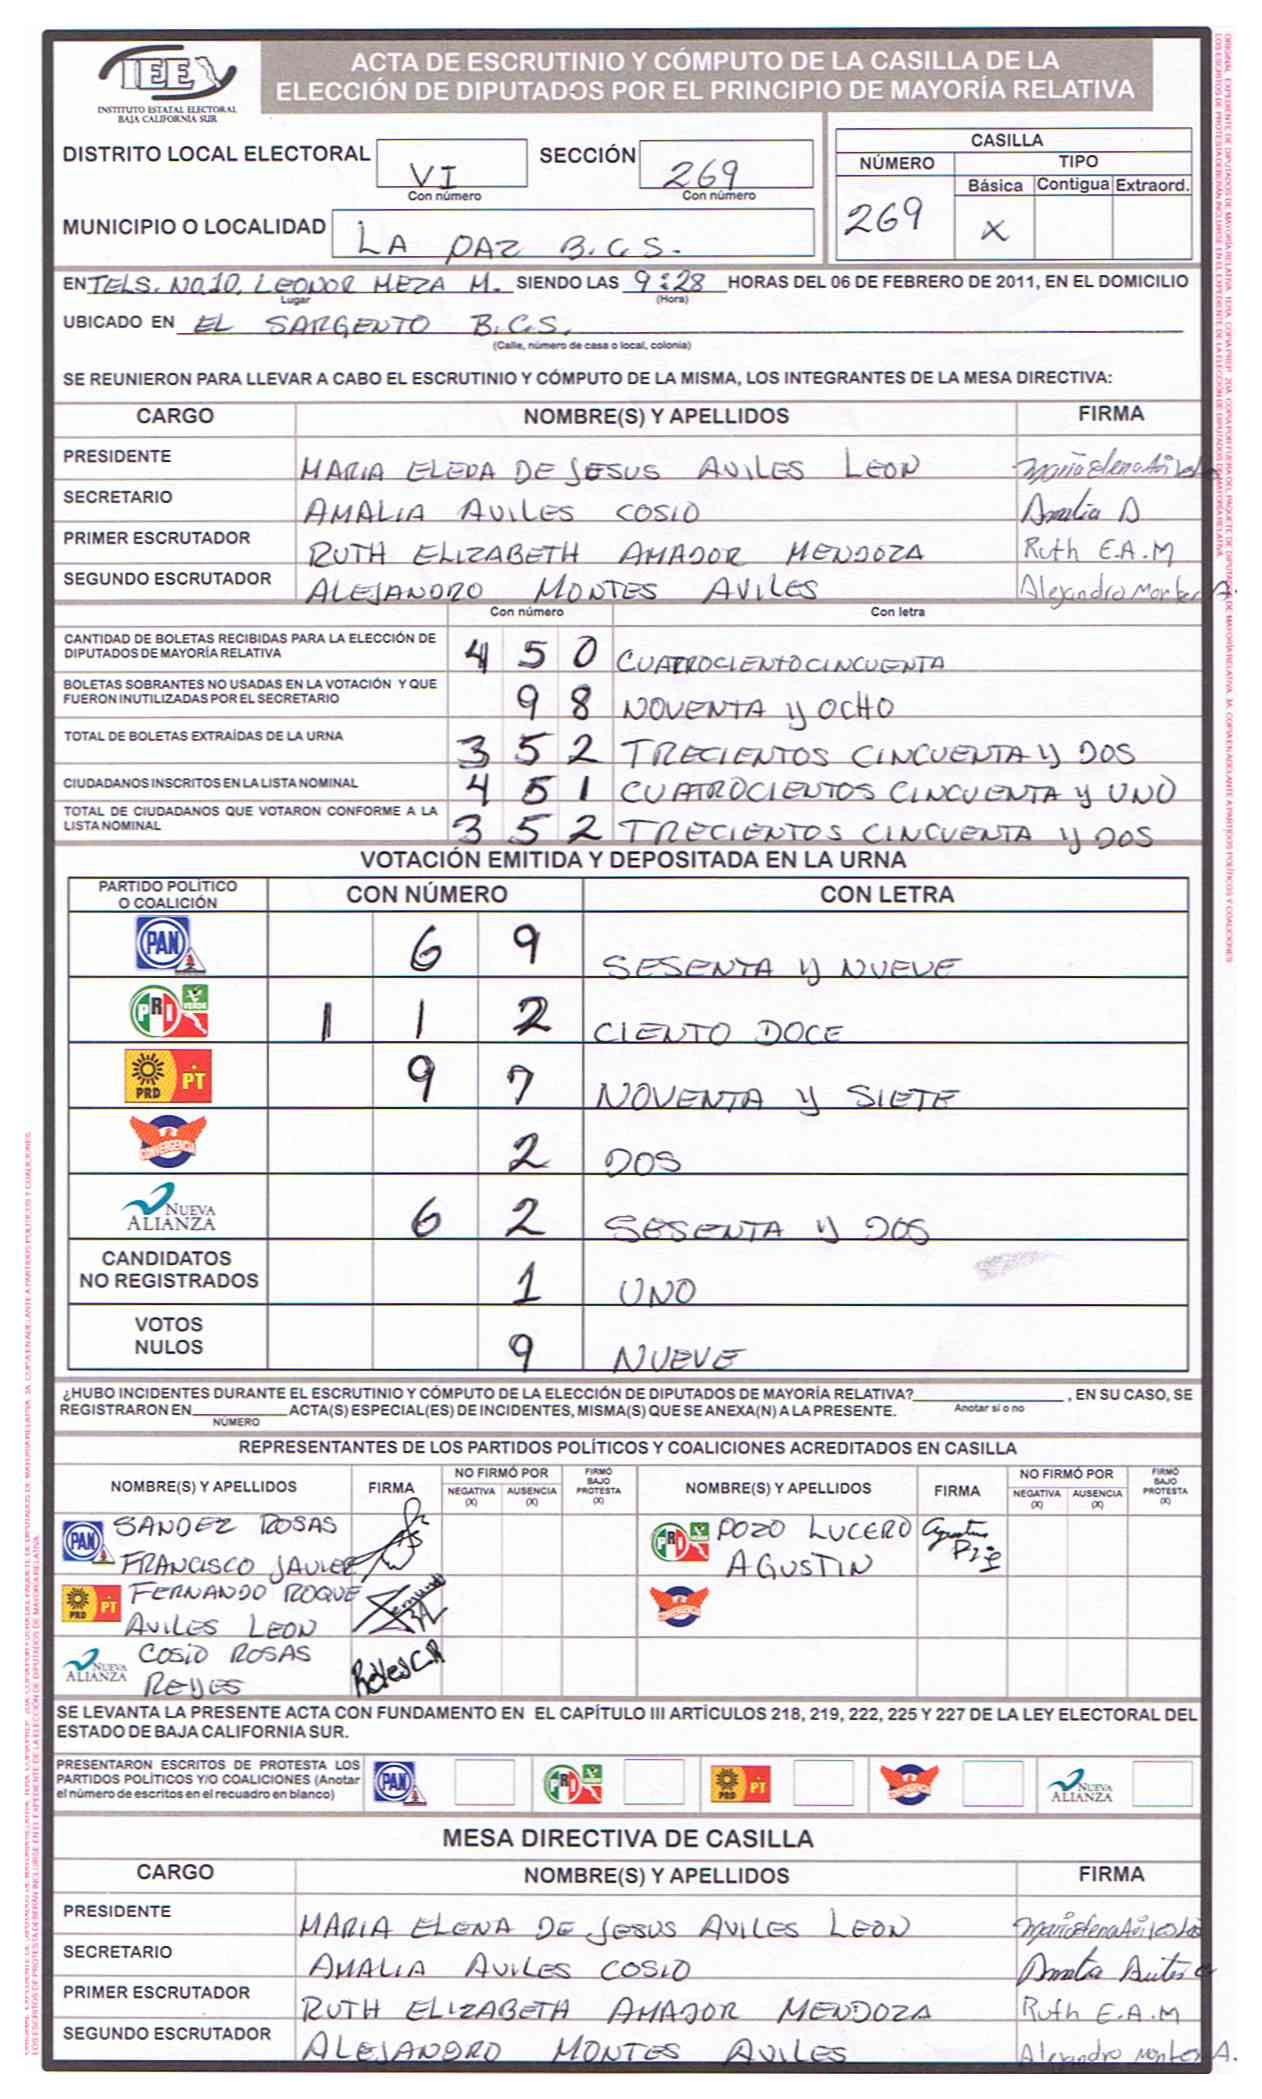 IEE
INSTITUTO ESTATAL ELECTORAL
BAJA CALIFORNIA SUR
ACTA DE ESCRUTINIO Y CÓMPUTO DE LA CASILLA DE LA
ELECCIÓN DE DIPUTADOS POR EL PRINCIPIO DE MAYORÍA RELATIVA
DISTRITO LOCAL ELECTORAL VI SECCIÓN 269
Con número Con número
MUNICIPIO O LOCALIDAD LA PAZ B.C.S.
CASILLA
NÚMERO TIPO
Básica Contigua Extraord.
269 X
EN TELS. NO.10, LEONOR MEZA M. SIENDO LAS 9:28 HORAS DEL 06 DE FEBRERO DE 2011, EN EL DOMICILIO
Lugar (Hora)
UBICADO EN EL SARGENTO B.C.S.
(Calle, número de casa o local, colonia)
SE REUNIERON PARA LLEVAR A CABO EL ESCRUTINIO Y CÓMPUTO DE LA MISMA, LOS INTEGRANTES DE LA MESA DIRECTIVA:
CARGO NOMBRE(S) Y APELLIDOS FIRMA
PRESIDENTE MARIA ELEDA DE JESUS AVILES LEON
SECRETARIO AMALIA AVILES COSIO Amalia A
PRIMER ESCRUTADOR RUTH ELIZABETH AMADOR MENDOZA Ruth E.A.M
SEGUNDO ESCRUTADOR ALEJANDRO MONTES AVILES Alejandro Montes A.
Con número Con letra
CANTIDAD DE BOLETAS RECIBIDAS PARA LA ELECCIÓN DE
DIPUTADOS DE MAYORÍA RELATIVA 4 5 0 CUATROCIENTOCINCUENTA
BOLETAS SOBRANTES NO USADAS EN LA VOTACIÓN Y QUE
FUERON INUTILIZADAS POR EL SECRETARIO 9 8 NOVENTA Y OCHO
TOTAL DE BOLETAS EXTRAÍDAS DE LA URNA 3 5 2 TRECIENTOS CINCUENTA Y DOS
CIUDADANOS INSCRITOS EN LA LISTA NOMINAL 4 5 1 CUATROCIENTOS CINCUENTA Y UNO
TOTAL DE CIUDADANOS QUE VOTARON CONFORME A LA
LISTA NOMINAL 3 5 2 TRECIENTOS CINCUENTA Y DOS
VOTACIÓN EMITIDA Y DEPOSITADA EN LA URNA
PARTIDO POLÍTICO
O COALICIÓN CON NÚMERO CON LETRA
PAN 6 9 SESENTA Y NUEVE
PRI VERDE 1 1 2 CIENTO DOCE
PRD PT 9 7 NOVENTA Y SIETE
CONVERGENCIA 2 DOS
NUEVA ALIANZA 6 2 SESENTA Y DOS
CANDIDATOS
NO REGISTRADOS 1 UNO
VOTOS
NULOS 9 NUEVE
¿HUBO INCIDENTES DURANTE EL ESCRUTINIO Y CÓMPUTO DE LA ELECCIÓN DE DIPUTADOS DE MAYORÍA RELATIVA? , EN SU CASO, SE
Anotar sí o no
REGISTRARON EN ACTA(S) ESPECIAL(ES) DE INCIDENTES, MISMA(S) QUE SE ANEXA(N) A LA PRESENTE.
NÚMERO
REPRESENTANTES DE LOS PARTIDOS POLÍTICOS Y COALICIONES ACREDITADOS EN CASILLA
NOMBRE(S) Y APELLIDOS FIRMA NO FIRMÓ POR NEGATIVA (X) AUSENCIA (X) FIRMÓ BAJO PROTESTA (X) NOMBRE(S) Y APELLIDOS FIRMA NO FIRMÓ POR NEGATIVA (X) AUSENCIA (X) FIRMÓ BAJO PROTESTA (X)
PAN SANDEZ ROSAS
FRANCISCO JAVIER
PRI VERDE POZO LUCERO
AGUSTIN
PRD PT FERNANDO ROQUE
AVILES LEON
CONVERGENCIA
NUEVA ALIANZA COSIO ROSAS
REYES Reyes C.R
SE LEVANTA LA PRESENTE ACTA CON FUNDAMENTO EN EL CAPÍTULO III ARTÍCULOS 218, 219, 222, 225 Y 227 DE LA LEY ELECTORAL DEL
ESTADO DE BAJA CALIFORNIA SUR.
PRESENTARON ESCRITOS DE PROTESTA LOS
PARTIDOS POLÍTICOS Y/O COALICIONES (Anotar
el número de escritos en el recuadro en blanco)
PAN PRI VERDE PRD PT CONVERGENCIA NUEVA ALIANZA
MESA DIRECTIVA DE CASILLA
CARGO NOMBRE(S) Y APELLIDOS FIRMA
PRESIDENTE MARIA ELENA DE JESUS AVILES LEON
SECRETARIO AMALIA AVILES COSIO
PRIMER ESCRUTADOR RUTH ELIZABETH AMADOR MENDOZA Ruth E.A.M
SEGUNDO ESCRUTADOR ALEJANDRO MONTES AVILES Alejandro Montes A.